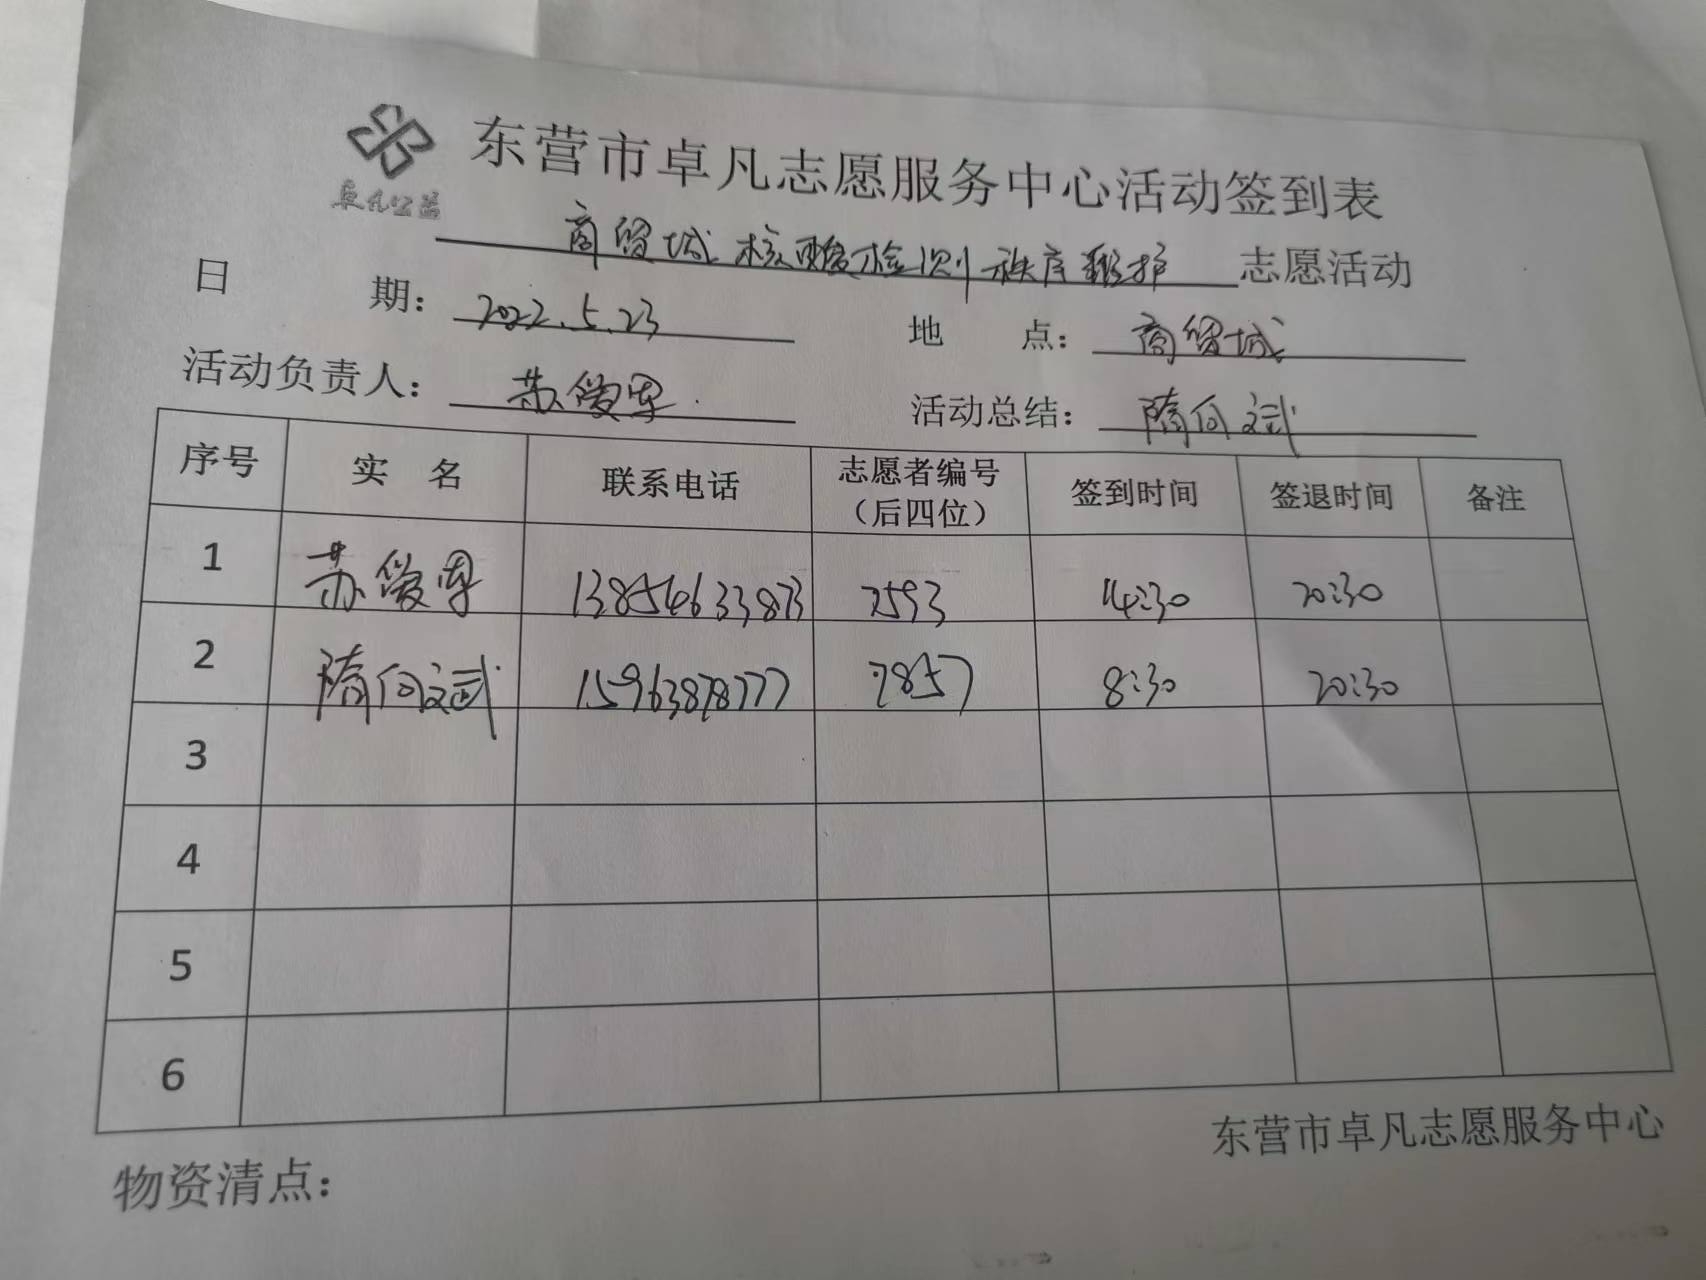 东营市卓凡志愿服务中心活动签到表
卓凡公益
商贸城核酸检测秩序维护志愿活动
日期：2022.5.23 地点：商贸城
活动负责人：苏爱军 活动总结：隋向斌
序号 实名 联系电话 志愿者编号（后四位） 签到时间 签退时间 备注
1 苏爱军 13854633873 7593 14:30 20:30
2 隋向斌 15963878777 7857 8:30 20:30
3
4
5
6
东营市卓凡志愿服务中心
物资清点：